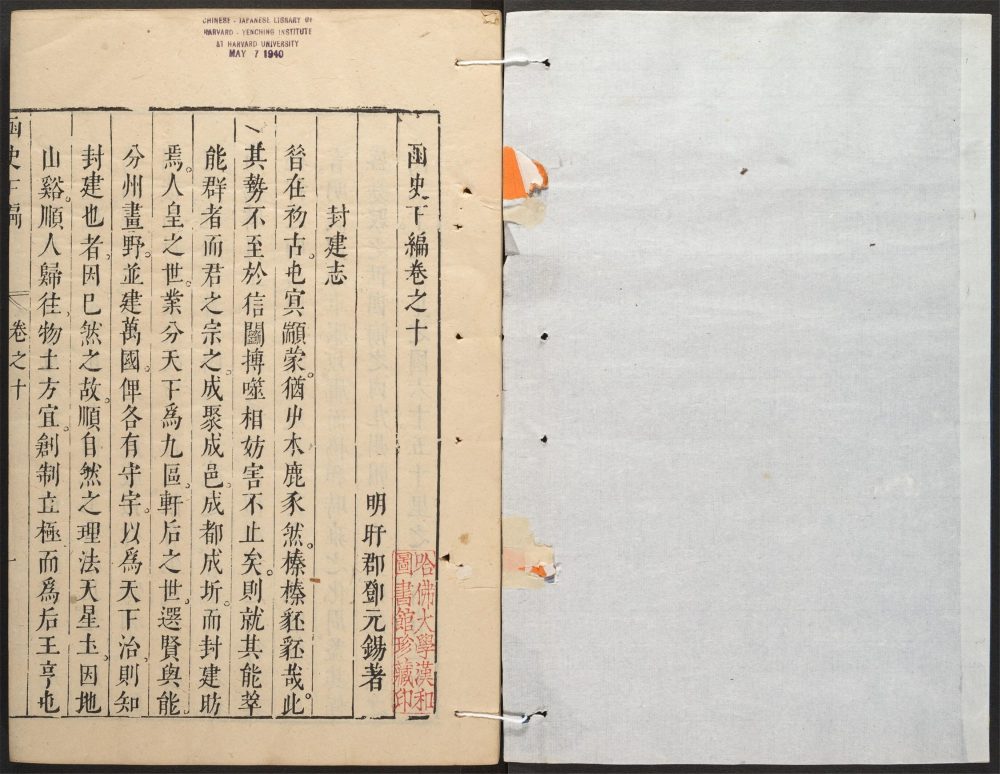 CHINESE - JAPANESE LIBRARY OF
HARVARD - YENCHING INSTITUTE
AT HARVARD UNIVERSITY
MAY 7 1940
函史下編卷之十
明盱郡鄧元錫著
哈佛大學漢和
圖書館珍藏印
封建志
昝在初古屯冥顓蒙猶屮木鹿豕然榛榛豾豾哉此
其勢不至於信鬪搏噬相妨害不止矣則就其能萃
能群者而君之宗之成聚成邑成都成圻而封建昉
焉人皇之世業分天下爲九區軒后之世選賢與能
分州畫野並建萬國俾各有守宇以爲天下治則知
封建也者因已然之故順自然之理法天星土因地
山谿順人歸往物土方宜創制立極而爲后王亨屯
函史下編
卷之十
一